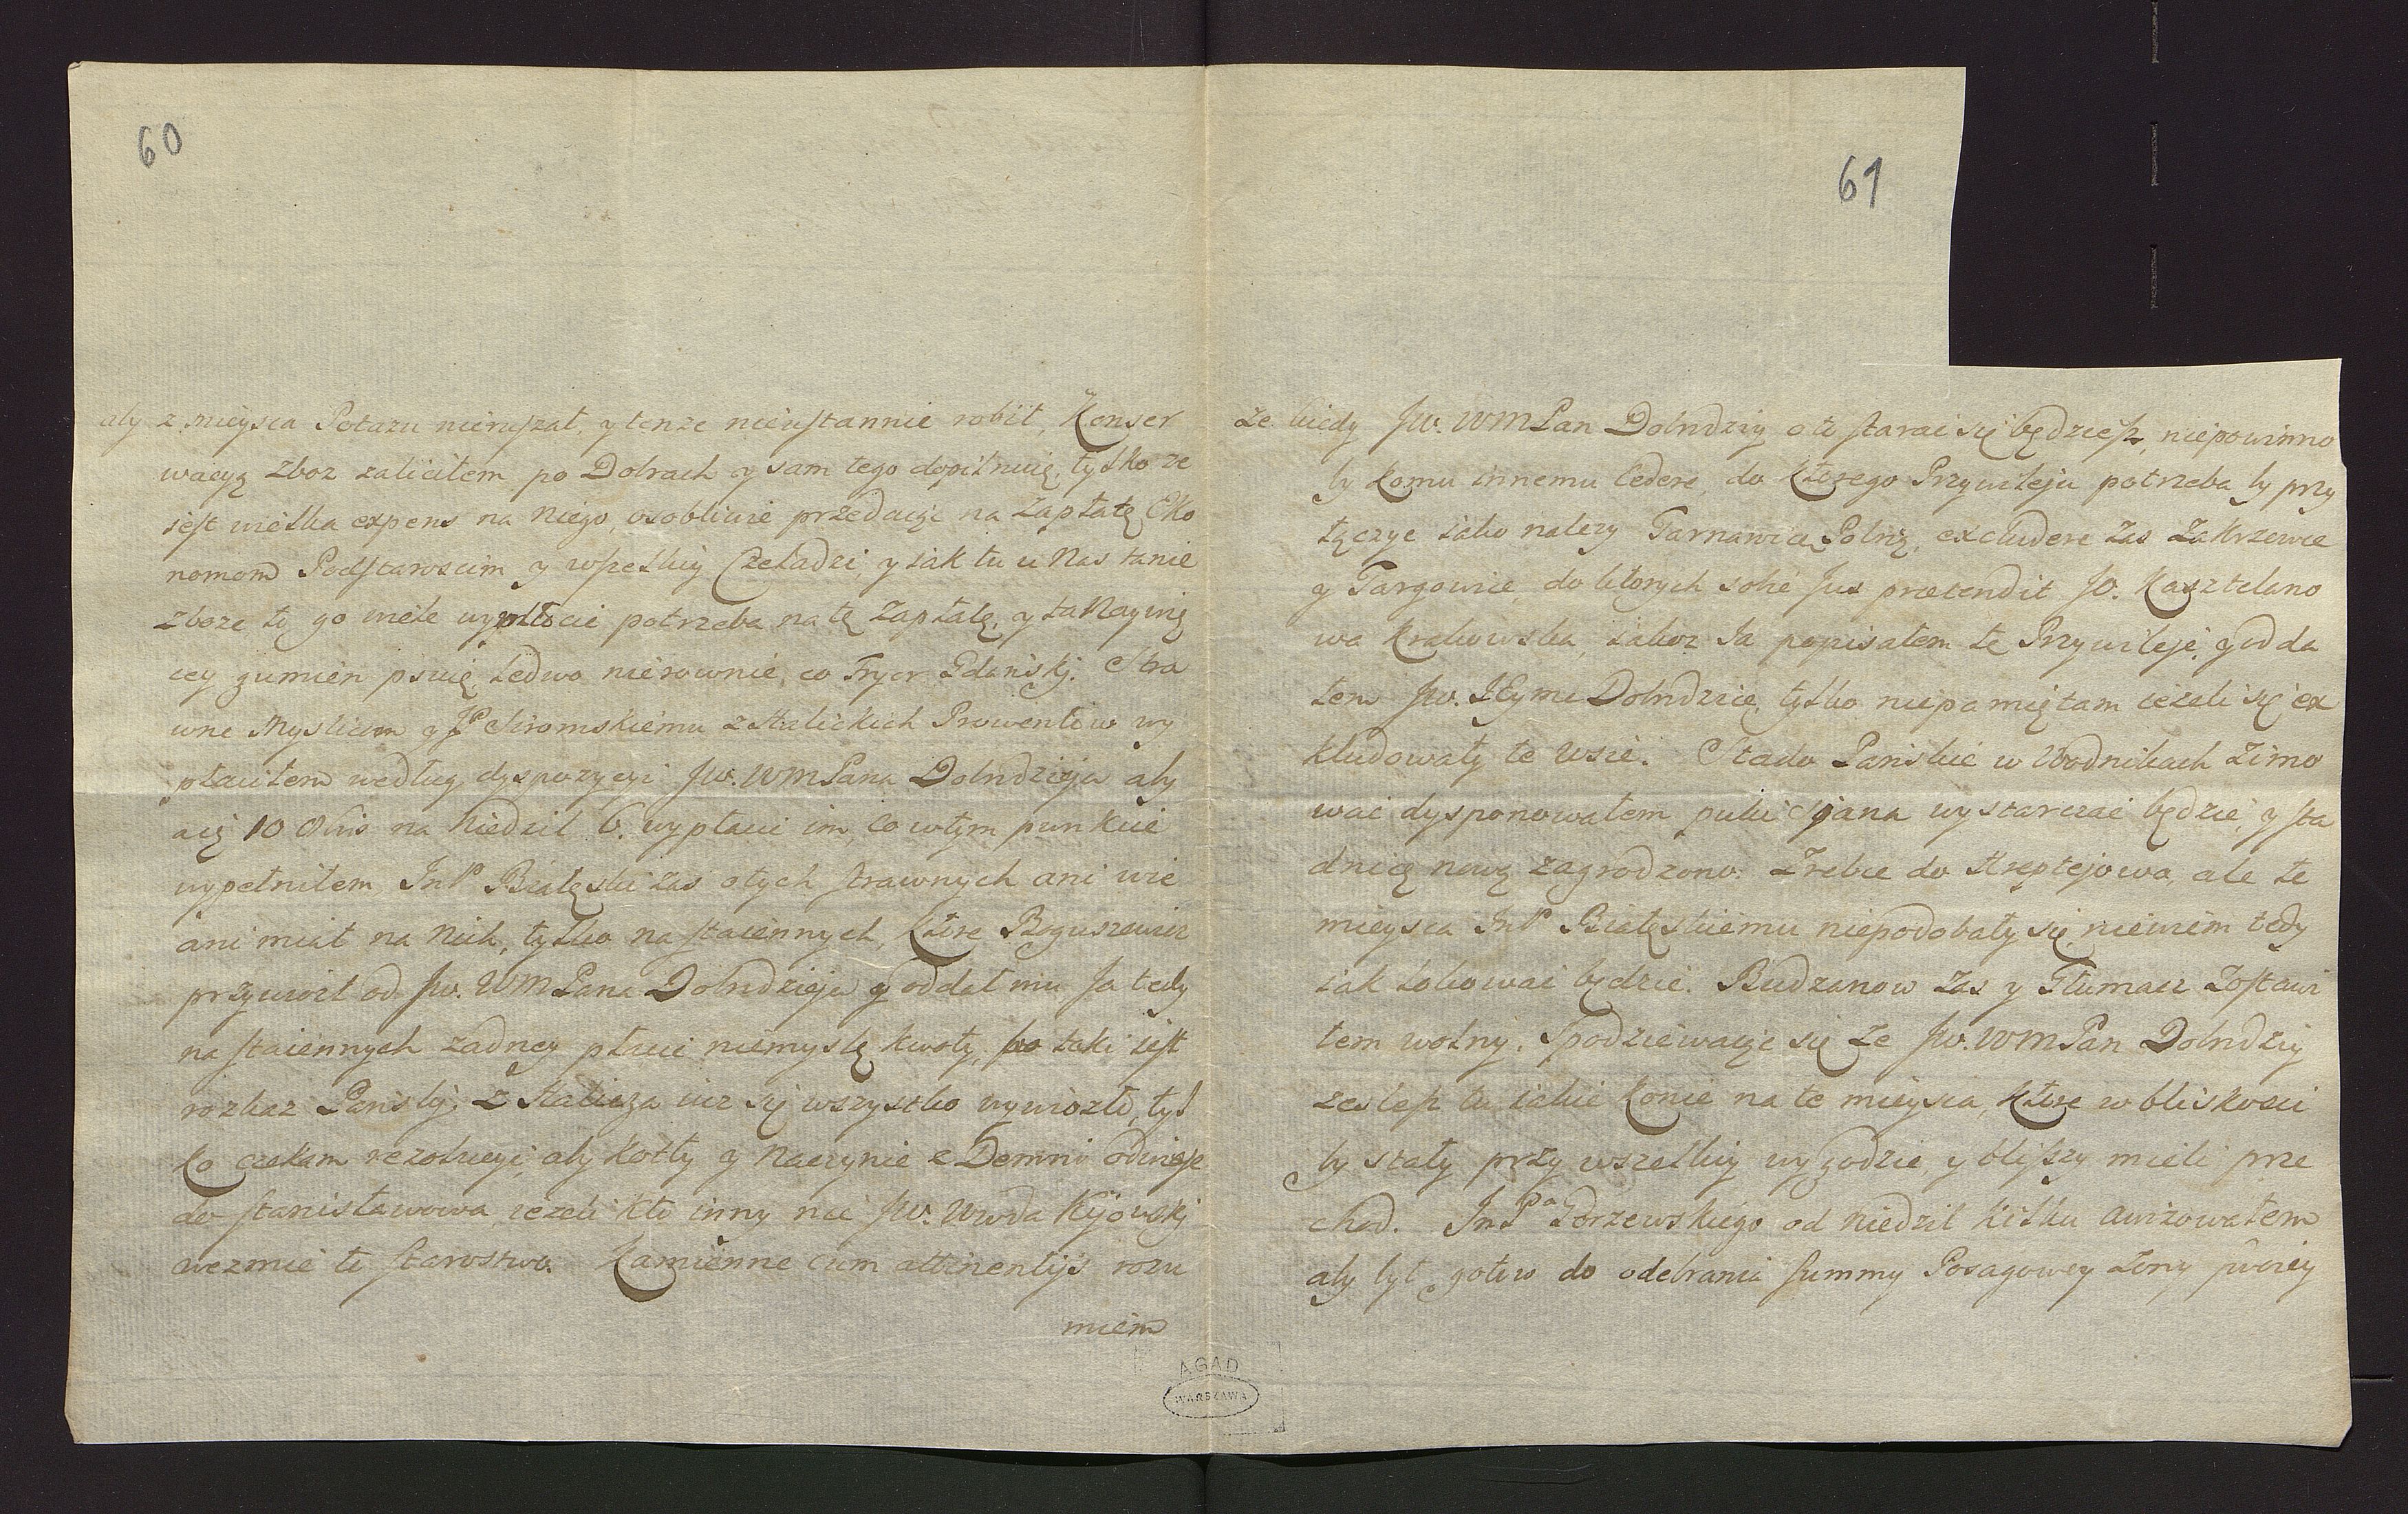 60
aby z mieysca Potazu nieruszał, y tenże nieustannie robił, Konser
wacyą zboz zaliciłem po Dobrach y sam tego dopilnuię, tylko ze
iest wielka expens na niego, osobliwie przedaiąc na Zapłatę Eko
nomom Podstarościm y wszelkiy Czeladzi, y iak tu u Nas tanie
zboze to go wiele wymłócić potrzeba na tę Zapłatę, y ta Naywię
cey gumien psuię ledwo nierownie, co Fryor Gdański. Stra
wne Myśliwm y JP Schromskiemu z Halickich Prowentow wy
płaciłem według dyspozycyi Jw. WMPana Dobrodzieja aby
aię 10 Obis na Niedziel 6. wypłacić im, co w tym punkcie
wypełniłem JmP Białęski zas o tych strawnych ani wie
ani miał na Nich, tylko na staiennych, ktore Boguszewicz
przywiozł od Jw. WMPana Dobrodzieja y oddał mu Ja tedy
na staiennych zadney płacić niemyślę kwoty, bo taki iest
rozkaz Pański, Z Halicza iuz się wszystko wywiozło, tyl
ko czekam rezolucyi, aby kotły y naczynie z Demni odwieść
do Stanisławowa, iezeli kto inny nie Jw. Wwda Kijowskj
wezmie te Starostwo. Kamienne cum attinentijs rozu
miem
61
Ze kiedy Jw. WMPan Dobrodziy o to starać się będziesz, niepowinno
by komu innemu cedere, do ktorego Przywileju potrzeba by przy
łączyć iako nalezy Tarnawicę Polną, excludere zas Zakrzewce
y Targowice, do ktorych sobie Jus prætendit Jo. Kasztelano
wa Krakowska, iakoz Ja popisałem te Przywileje, y odda
łem Jw. JEymc Dobrodzice, tylko niepamiętam iezeli się ex
kludowały te wsie. Stado Pańskie w Wodnikach zimo
wać dysponowałem puki siana wystarczać będzie, y sta
dnicę nową zagrodzono. Zrebce do Kreptejowa, ale te
mieysca JmP Białęskiemu niepodobały się niewiem tedy
iak lokować będzie. Budzanow zas y Tłumacz zostawi
łem wolny, Spodziewaiąc się ze Jw. WMPan Dobrodziy
zeslesz tu iakie konie na te mieysca, ktore w bliskości
by stały przy wszelkiy wygodzie, y bliszy mieli prze
chod. JmPa Gorzewskiego od Niedziel kilku awizowałem
aby był gotow do odebrania Summy Posagowey Zony swoiey
AGAD
WARSZAWA